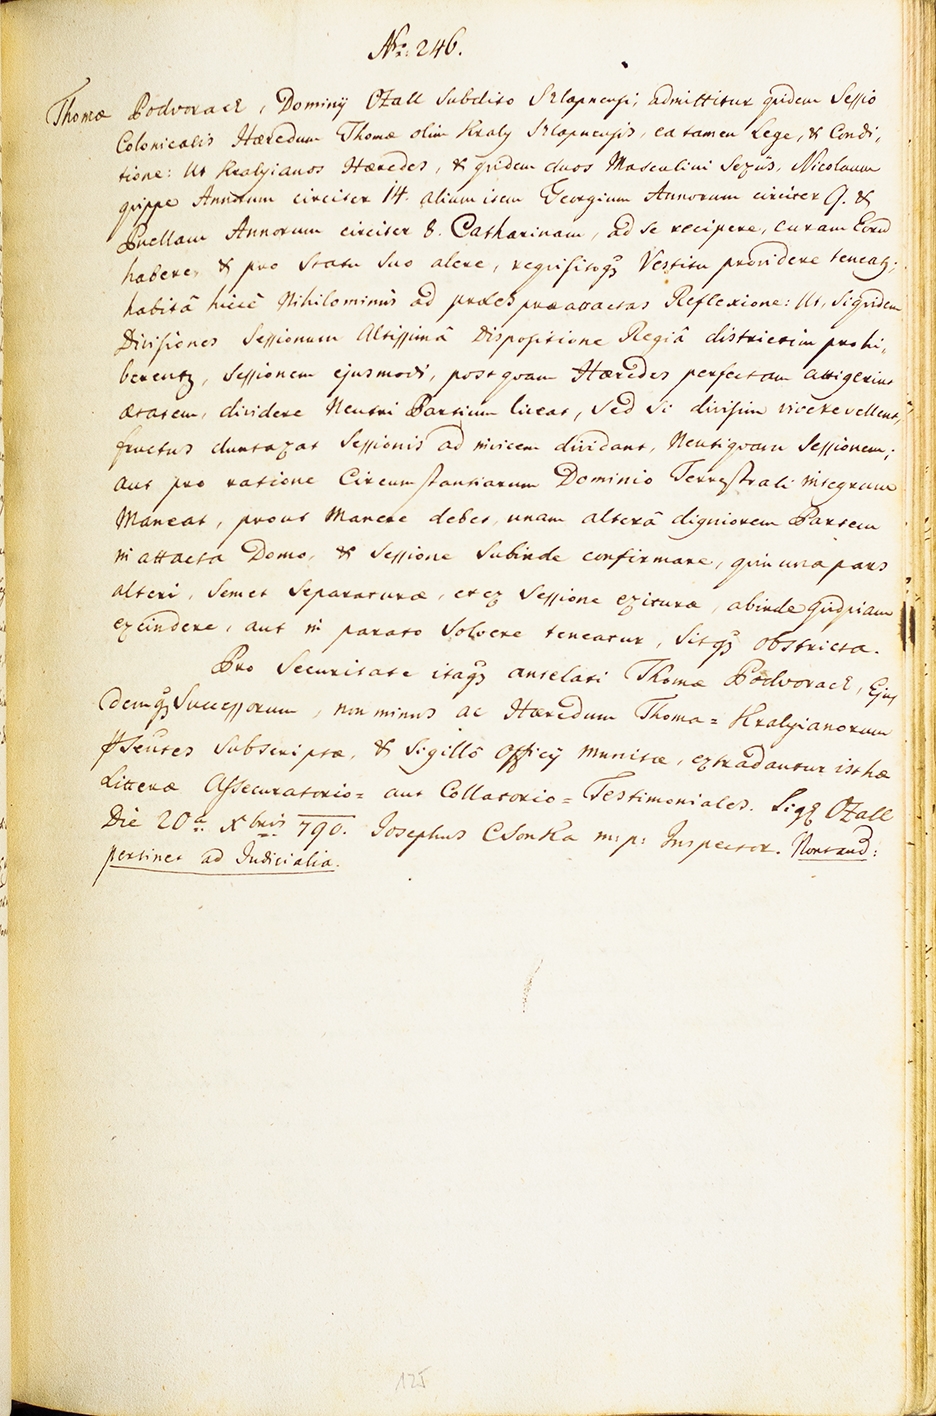 Nro: 246.
Thomæ Podvorack, Dominÿ Ozall Subdito Szlapnensi, admittitur quidem Sessio
Colonicalis Hæredum Thomæ olim Kraly Szlapnensis, ea tamen Lege, & Condi,
tione: Ut Kralyianos Hæredes, & quidem duos Masculini Sexûs, Nicolaum
quippe Annorum circiter 14. alium item Georgium Annorum circiter 9. &
Puellam Annorum circiter 8. Catharinam, ad se recipere, curam Eorū
habere, & pro Statu Suo alere, requisitoq3 Vestitu providere teneatr;
habitâ hicce Nihilominùs ad proles præattactas Reflexione: Ut, Siquidem
Divisiones Sessionum Altissimâ Dispositione Regiâ districtim prohi,
berentr, Sessionem ejusmodi, postquam Hæredes perfectam attigerint
ætatem, dividere Neutri Partium liceat, Sed Si divisim vivere vellent,
fructus duntaxat Sessionis ad invicem dividant, Neutiquam Sessionem;
aut pro ratione Circumstantiarum Dominio Terrestrali integrum
Maneat, prout Manere debet, unam alterâ digniorem Partem
in attacta Domo, & Sessione Subinde confirmare, quin una pars
alteri, Semet Separaturæ, et ex Sessione exituræ, abinde quidpiam
excindere, aut in parato Solvere teneatur, Sitq3 obstricta.
Pro Securitate itaq3 antelati Thomæ Podvorack, Ejus
demq3 Successorum, non minus ac Hæredum Thoma = Kralyianorum
Pseñtes Subscriptæ, & Sigillô Officÿ munitæ, extradantur isthæ
Litteræ Assecuratorio = aut Collatorio = Testimoniales. Sigl Ozall
Die 20a Xbris 790. Josephus Csonka m: p: Inspector. Nortand:
pertinet ad Judicialia.
125